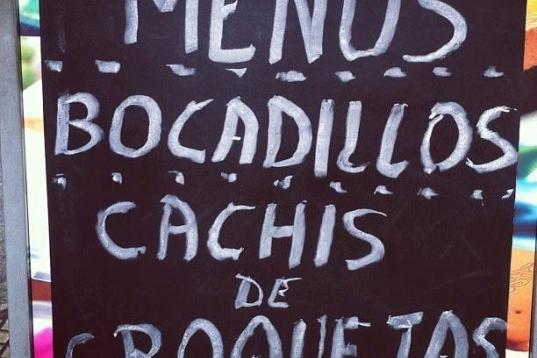 MENUS
BOCADILLOS
CACHIS
DE
CROQUETAS